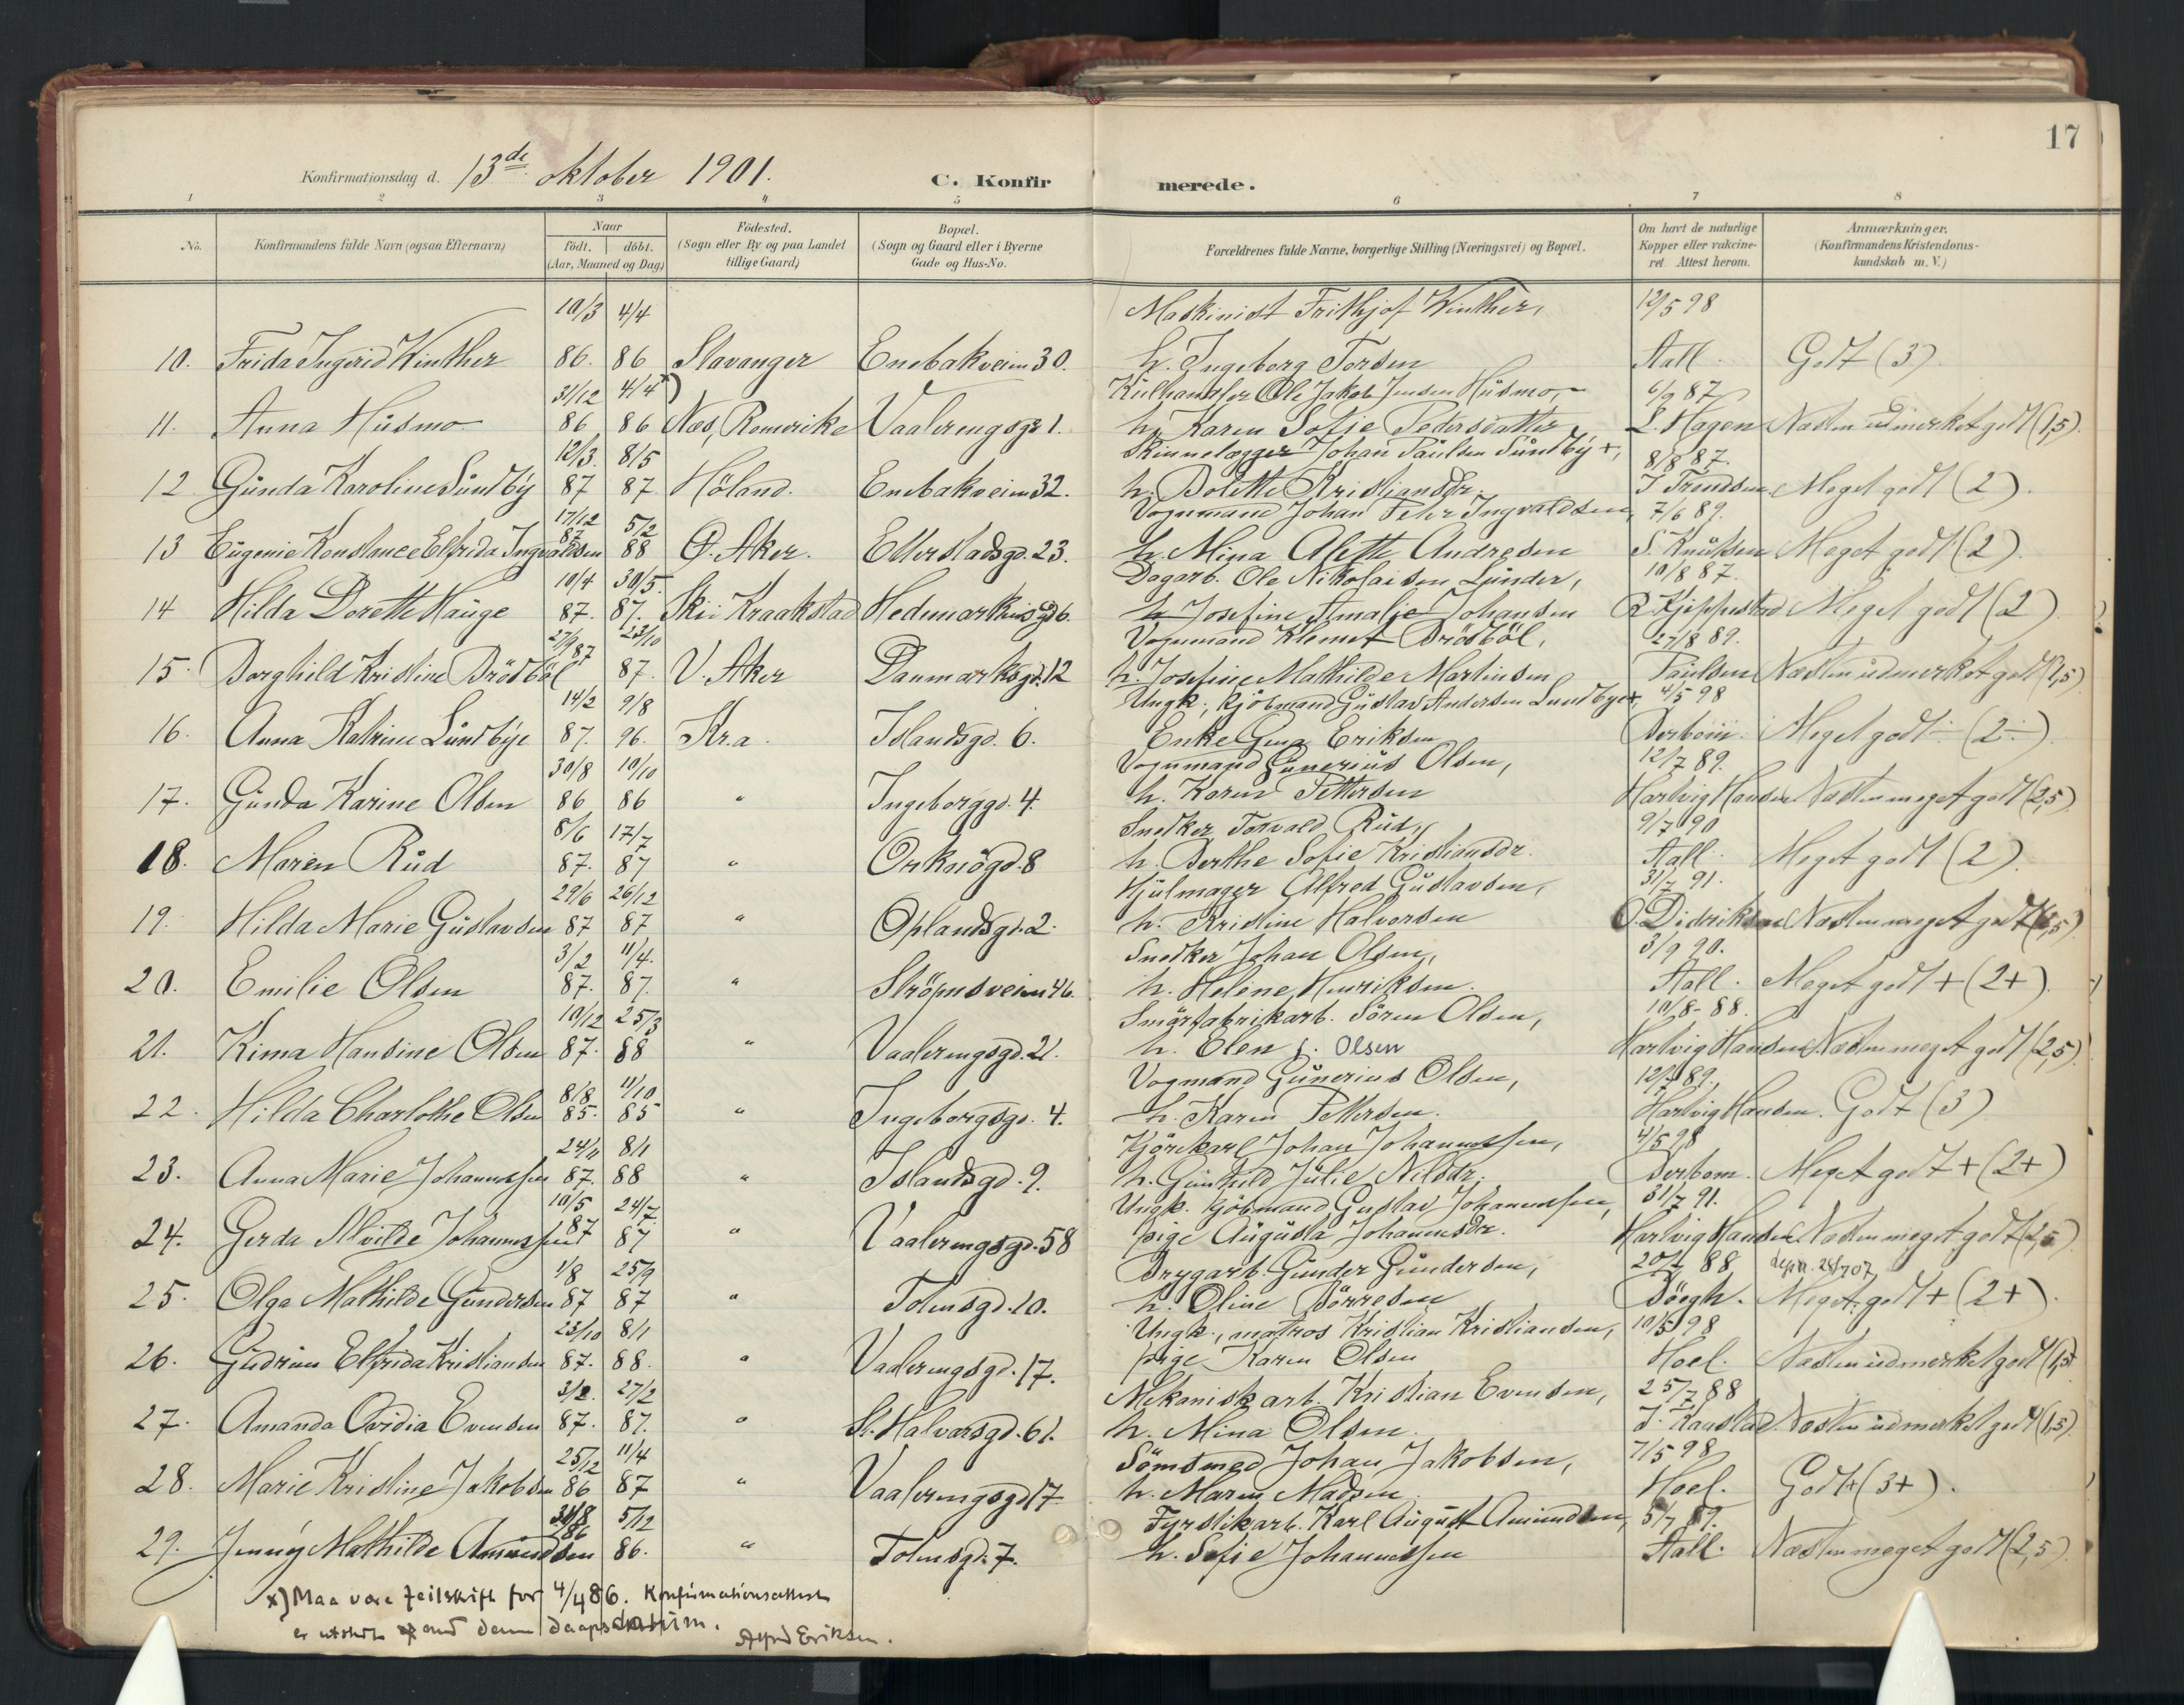 17
Konfirmationsdag d. 13de oktober 1901. C. Konfirmerede.
1 2 3 4 5 6 7 8
No. Konfirmandens fulde Navn (ogsaa Efternavn) Naar födt. döbt. (Aar, Maaned og Dag) Födested. (Sogn eller By og paa Landet tillige Gaard) Bopæl. (Sogn og Gaard eller i Byerne Gade og Hus-No. Forældrenes fulde Navne, borgerlige Stilling (Næringsvei) og Bopæl. Om havt de naturlige Kopper eller vakcineret Attest herom. Anmærkninger, (Konfirmandens Kristendomskundskab m. V.)
10/3 4/4 Maskinist Frithjof Winther, 12/5 98
10. Frida Ingerid Winther 86. 86 Stavanger Enebakveien 30. h. Ingeborg Torsen Stall. Godt (3).
31/12 4/4 x) Kulhandler Ole Jakob Jensen Husmo, 6/9 87
11. Anna Husmo 86 86 Næs, Romerike Vaalerengsgd 1. h. Karen Sofie Pedersdatter L. Hagen Næsten udmerket godt (1,5).
12/3. 8/5 Skinnelægger Johan Paulsen Sundby +, 8/8 87.
12 Gunda Karoline Sundby 87 87 Höland. Enebakveien 32. h. Bolette Kristiansdr. J Trondsen Meget godt (2).
17/12 5/2 Vognmand Johan Fehr Ingvaldsen, 7/6 89.
13 Eugenie Konstance Elfrida Ingvaldsen 87 88 Ö. Aker. Etterstadsgd. 23. h. Mina Alette Andresen S. Knutsen Meget godt (2).
10/4 30/5. Dagarb. Ole Nikolaisen Lunder, 10/8 87.
14 Hilda Dorette Hauge 87. 87. Ski i Kraakstad Hedemarkensgd 6. h Josefine Amalie Johansen R. Kjeppestad Meget godt (2)
27/9 87 23/10 Vognmand Klemet Brödböl, 27/8 89.
15. Borghild Kristine Brödböl 87. V. Aker Danmarksgd. 12 h. Josefine Mathilde Martinsen Paulsen Næsten udmerket godt (1,5)
14/2 9/8 Ungk., kjöbmand Gustav Andersen Lundbye +, 4/5 98
16. Anna Katrine Lundbye 87. 96. Kr.a. Islandsgd. 6. Enke Gina Eriksen Berbom. Meget godt ÷ (2÷).
30/8 10/10 Vognmand Gunerius Olsen, 12/7 89.
17. Gunda Karine Olsen 86 86 " Ingeborggd. 4. h. Karen Pettersen Hartvig Hansen Næsten meget godt (2,5)
8/6 17/7 Snedker Torvald Rud, 9/7 90
18. Maren Rud 87. 87 " Orknögd. 8 h. Berthe Sofie Kristiansdr. Stall. Meget godt (2).
29/6 26/12 Hjulmager Alfred Gustavsen, 31/7 91.
19. Hilda Marie Gustavsen 87 87 " Oplandsgd. 2. h. Kristine Halvorsen O. Didriksen Næsten meget godt (2,5)
3/2 11/4. Snedker Johan Olsen, 3/9 90.
20. Emilie Olsen 87. 87. " Strömsveien 46. h. Helene Henriksen. Stall. Meget godt + (2+).
10/12 25/3 Smörfabrikarb. Sören Olsen, 10/8-88.
21. Kima Hansine Olsen 87. 88 " Vaalerengsgd. 21. h. Elen f. Olsen Hartvig Hansen Næsten meget godt (2,5)
8/8 11/10 Vogmand Gunerius Olsen, 12/7 89.
22. Hilda Charlotte Olsen 85. 85 " Ingeborgsgd. 4. h. Karen Pettersen. Hartvig Hansen. Godt (3)
24/11 8/1 Kjörekarl Johan Johannessen, 4/5 98
23. Anna Marie Johannessen 87. 88 " Islandsgd. 9. h. Gunhild Julie Nilsdr. Berbom. Meget godt + (2+)
10/5 24/7. Ungk. kjöbmand Gustav Johannessen, 31/7 91.
24. Gerda Alvilde Johannessen 87 87 " Vaalerengsgd. 58 pige Augusta Johannesdr. Hartvig Hansen Næsten meget godt (2,5)
1/8 25/9 Brygarb. Gunder Gundersen, 20/7 88
25. Olga Mathilde Gundersen 87 87 " Tolmsgd. 10. h. Oline Börresen Böegh. Meget godt + (2+).
23/10 8/1 Ungk., matros Kristian Kristiansen, 10/5 98
26. Gudrun Elfrida Kristiansen 87. 88. " Vaalerengsgd. 17. pige Karen Olsen Hoel. Næsten udmerket godt (1,5)
3/2. 27/2 Mekanisk arb. Kristian Evensen, 25/7 88
27. Amanda Ovidia Evensen 87. 87. " St. Halvarsgd. 61. h. Mina Olsen. Næsten udmerket godt (1,5).
25/12 11/4 Sömsmed Johan Jakobsen, 7/5 98
28. Marie Kristine Jakobsen 86 87 " Vaalerengsgd 17 h. Maren Madsen. Hoel. Godt + (3+).
31/8 5/12 Fyrstikarb. Karl August Amundsen, 5/7 89.
29. Jenny Mathilde Amundsen 86 86. " Tolmsgd. 7. h. Sofie Johannessen Stall. Næsten meget godt (2,5)
x) Maa være feilskrift for 4/4 86. Konfirmationsattest
er utskrevet med denne daapsdatum. Alfred Eriksen.